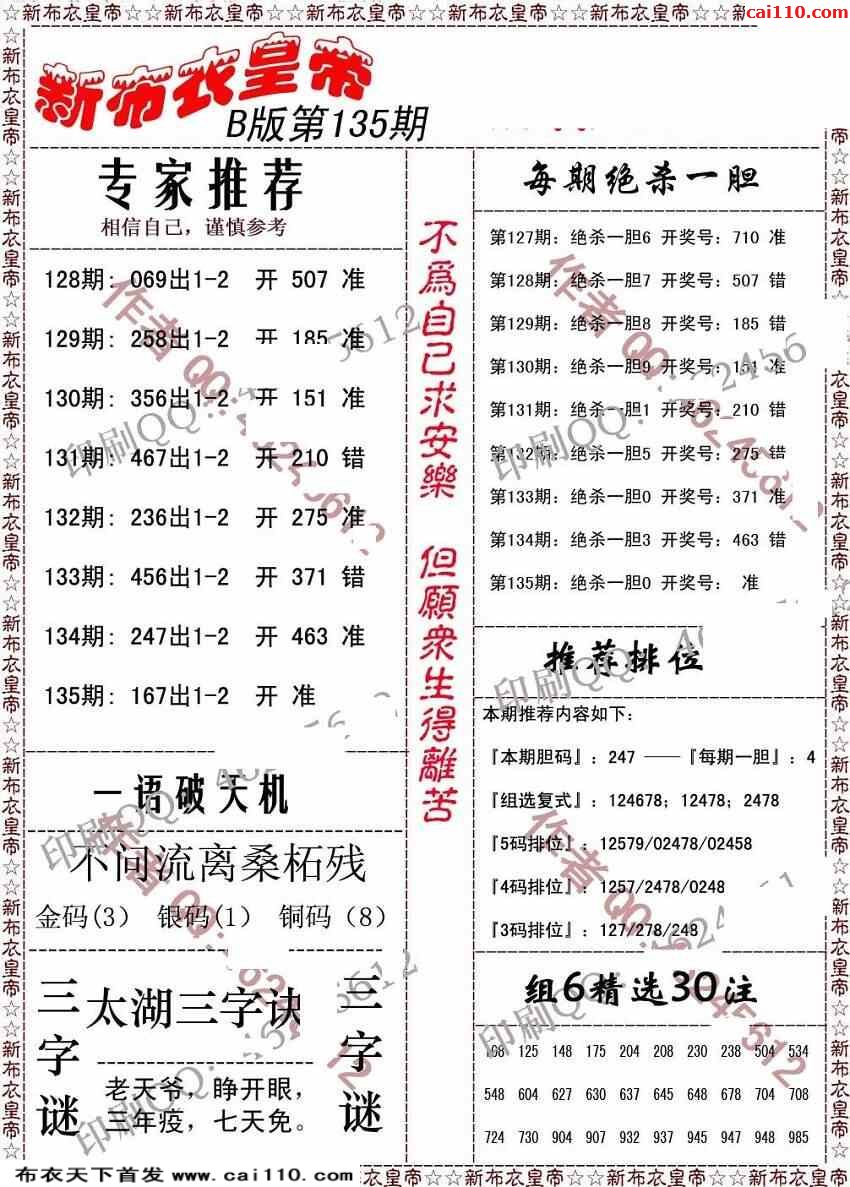 ☆☆新布衣皇帝☆☆新布衣皇帝☆☆新布衣皇帝☆☆新布衣皇帝☆☆新布衣皇帝☆☆新布衣皇帝☆☆
cai110.com
新布衣皇帝
B版第135期
专家推荐
相信自己，谨慎参考
128期: 069出1-2 开 507 准
129期: 258出1-2 开 185 准
130期: 356出1-2 开 151 准
131期: 467出1-2 开 210 错
132期: 236出1-2 开 275 准
133期: 456出1-2 开 371 错
134期: 247出1-2 开 463 准
135期: 167出1-2 开 准
一语破天机
不问流离桑柘残
金码(3) 银码(1) 铜码（8）
三字谜
太湖三字诀
老天爷，睁开眼，
三年疫，七天免。
三字谜
不爲自己求安樂 但願衆生得離苦
每期绝杀一胆
第127期: 绝杀一胆6 开奖号: 710 准
第128期: 绝杀一胆7 开奖号: 507 错
第129期: 绝杀一胆8 开奖号: 185 错
第130期: 绝杀一胆9 开奖号: 151 准
第131期: 绝杀一胆1 开奖号: 210 错
第132期: 绝杀一胆5 开奖号: 275 错
第133期: 绝杀一胆0 开奖号: 371 准
第134期: 绝杀一胆3 开奖号: 463 错
第135期: 绝杀一胆0 开奖号: 准
推荐排位
本期推荐内容如下:
『本期胆码』: 247 ——『每期一胆』: 4
『组选复式』: 124678; 12478; 2478
『5码排位』: 12579/02478/02458
『4码排位』: 1257/2478/0248
『3码排位』: 127/278/248
组6精选30注
125 148 175 204 208 230 238 504 534
548 604 627 630 637 645 648 678 704 708
724 730 904 907 932 937 945 947 948 985
布衣天下首发 www.cai110.com
衣皇帝☆☆新布衣皇帝☆☆新布衣皇帝☆☆新布衣皇帝☆☆